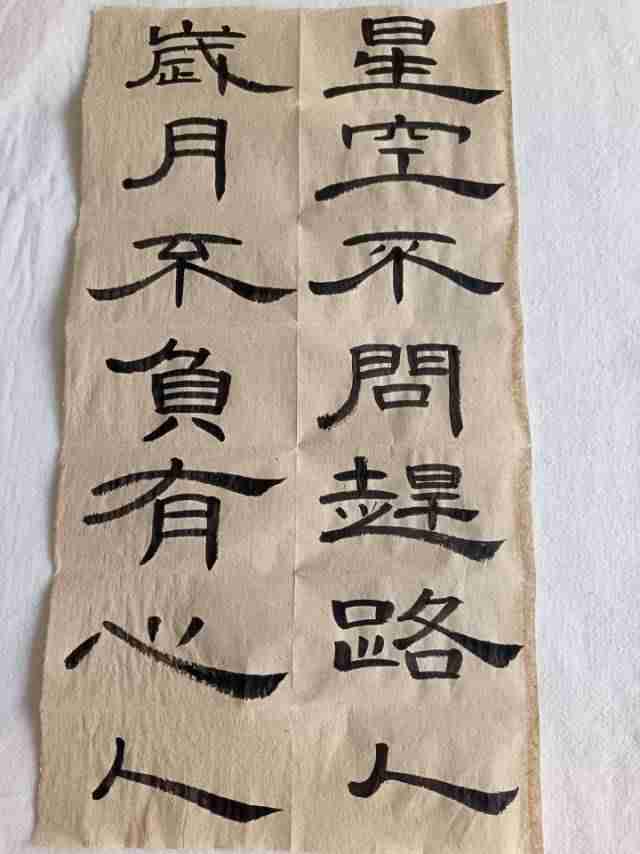 星空不問趕路人
歲月不負有心人